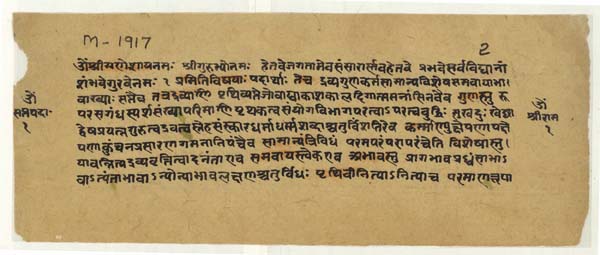 M-1917
2
ॐश्रीगणेशायनमः श्रीगुरुभ्योनमः हेतवेजगतामेवसंसारार्णवसेतवे प्रभवेसर्वविद्यानां
शंभवेगुरवेनमः १ प्रमितिविषयाः पदार्थाः तेच द्रव्यगुणकर्मसामान्यविशेषसमवायाभा
वाख्याः सप्तैव तत्रद्रव्याणि पृथिव्यप्तेजोवाय्वाकाशकालदिगात्ममनांसिनवैव गुणास्तु रू
परसगंधस्पर्शसंख्यापरिमाणपृथक्त्वसंयोगविभागपरत्वाऽपरत्वबुद्धिसुखदुःखेच्छा
द्वेषप्रयत्नगुरुत्वद्रवत्वस्नेहसंस्कारधर्माधर्मशब्दाश्चतुर्विंशतिरेव कर्माण्युत्क्षेपणापक्षे
पणाकुंचनप्रसारणगमनानिपंचैव सामान्यंत्रिविधं परमपरंपरापरंचेति विशेषास्तु
यावन्नित्यद्रव्यवृत्तित्वादनंताएव समवायस्त्वेकएव अभावस्तु प्रागभावप्रध्वंसाभाऽ
वाऽत्यंताभावाऽन्योन्याभावलक्षणश्चतुर्विधः पृथिवीनित्याऽनित्याच परमाणुरूपा
ॐ
सप्तपदा॰
१
ॐ
श्रीराम
१